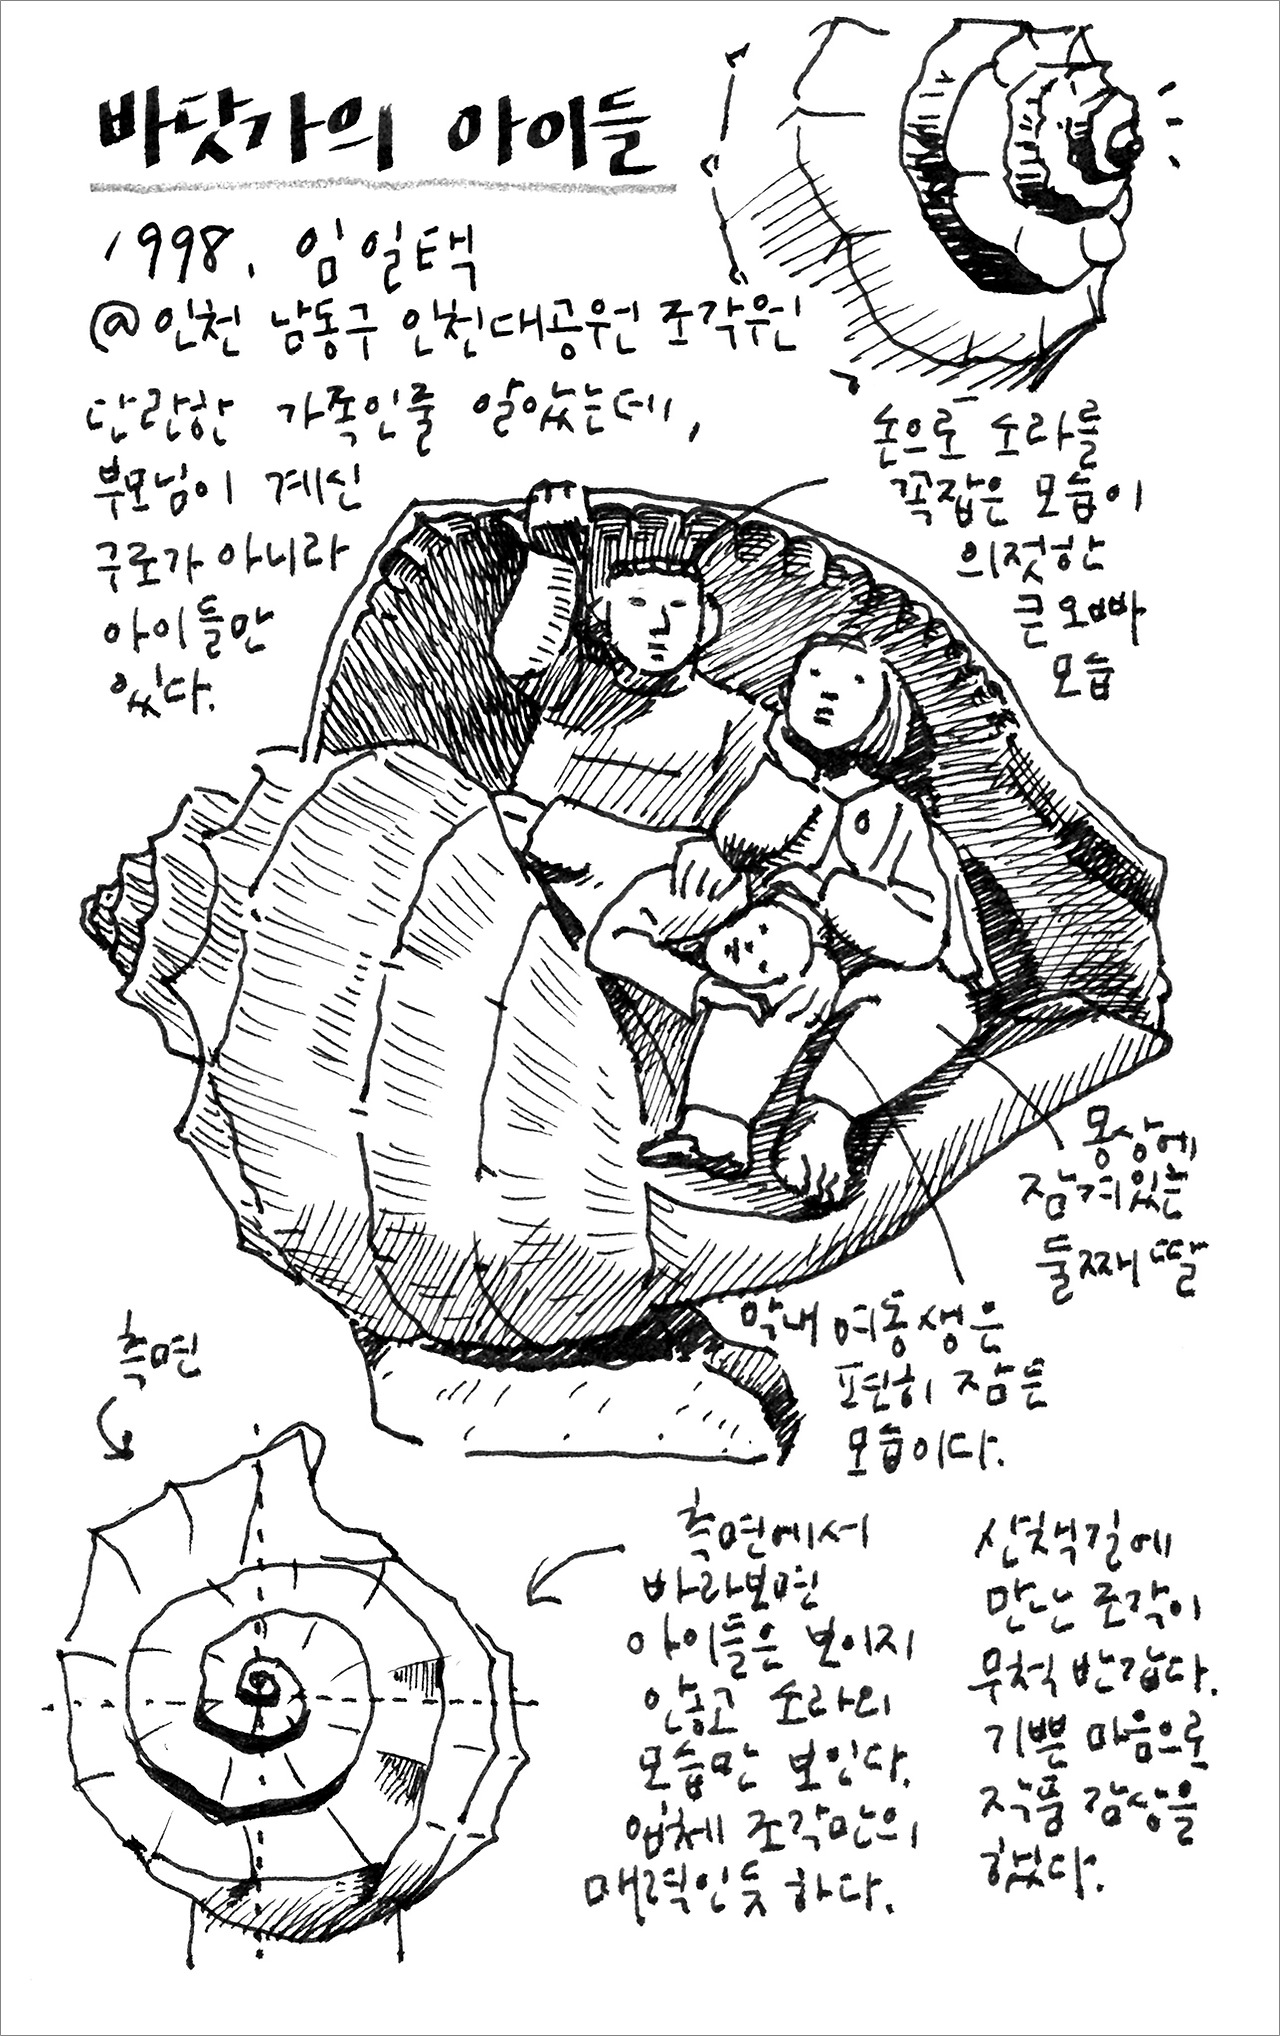 바닷가의 아이들
1998. 임일택
@인천 남동구 인천대공원 조각원
단란한 가족인줄 알았는데,
부모님이 계신
구로가 아니라
아이들만
있다.
손으로 소라를
꼭잡은 모습이
의젓한
큰오빠
모습
몽상에
잠겨있는
둘째딸
막내 여동생은
편히 잠든
모습이다.
측면
측면에서
바라보면
아이들은 보이지
않고 소라의
모습만 보인다.
입체 조각만의
매력인듯 하다.
산책길에
만난 조각이
무척 반갑다.
기쁜 마음으로
작품 감상을
했다.